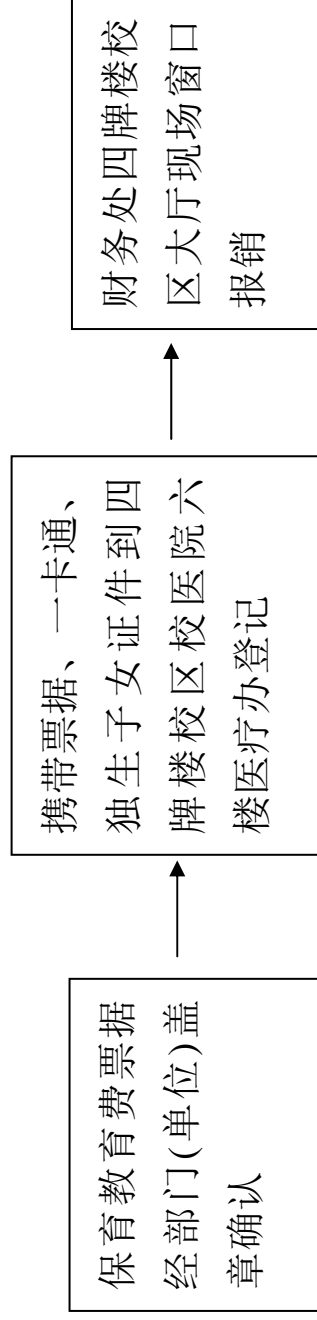 保育教育费票据
经部门(单位)盖
章确认
携带票据、一卡通、
独生子女证件到四
牌楼校区校医院六
楼医疗办登记
财务处四牌楼校
区大厅现场窗口
报销